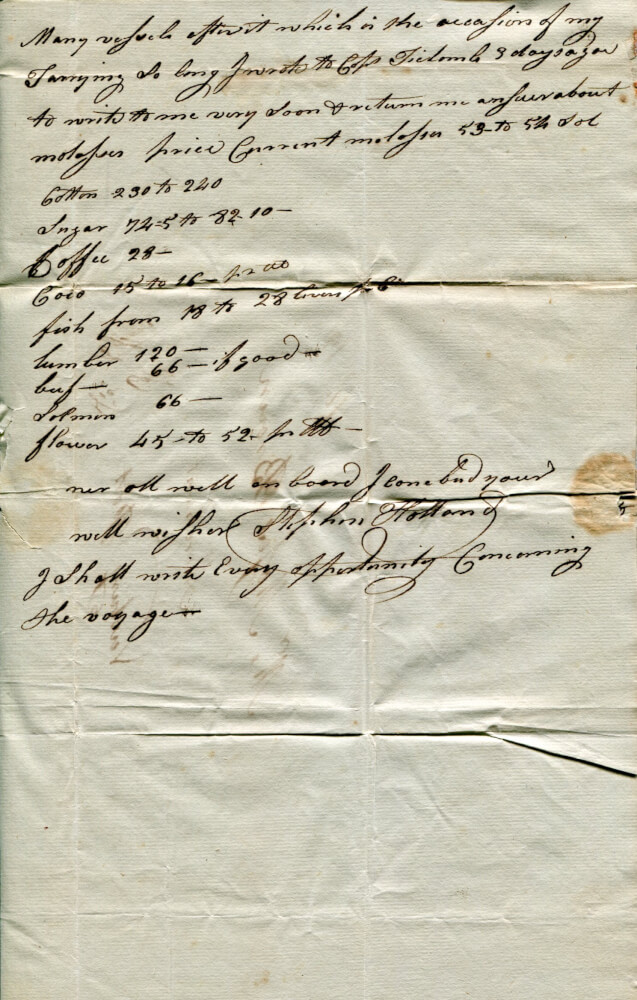 Many vessels after it which is the occasion of my
Tarrying So long I wrote to Capt Ticomb 3 days agoe
to write to me very Soon & return me answer about
molasses price Current molasses 53 to 54 Sol
Cotton 230 to 240
Sugar 74-5 to 82 10 —
Coffee 28 —
Coco 15 to 16 — pr
fish from 18 to 28 livers pr
lumber 120 —
beef — 66 — if good —
Solmon 66 —
flower 45 - to 52 - pr —
ner all well on board I conclud your
well wisher Stephen Holland
I Shall write Every opportunity Concerning
the voyage —